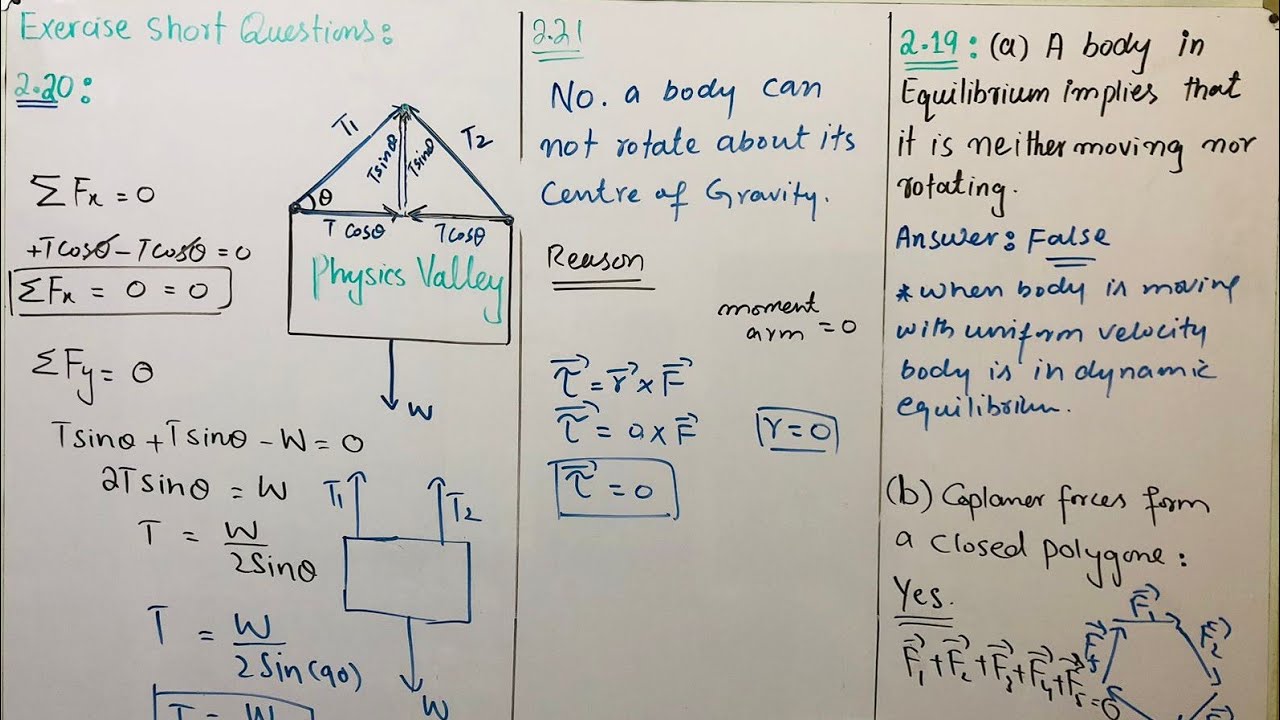 Exercise Short Questions:
2.20:
T₁
T₂
Tsinθ
Tsinθ
θ
T cosθ
Tcosθ
Physics Valley
W
ΣFx = 0
+Tcosθ - Tcosθ = 0
ΣFx = 0 = 0
ΣFy = 0
Tsinθ + Tsinθ - W = 0
2Tsinθ = W
T = W/2Sinθ
T = W/2Sin(90)
T = W
T₁
T₂
W
2.21
No. a body can
not rotate about its
Centre of Gravity.
Reason
moment
arm = 0
τ⃗ = r⃗ × F⃗
τ⃗ = 0 × F⃗
r = 0
τ⃗ = 0
2.19: (a) A body in
Equilibrium implies that
it is neither moving nor
rotating.
Answer: False
*when body is moving
with uniform velocity
body is in dynamic
equilibrium.
(b) Coplamer forces form
a closed polygone:
Yes.
F⃗₁ + F⃗₂ + F⃗₃ + F⃗₄ + F⃗₅ = 0
F⃗₁
F⃗₂
F⃗₅